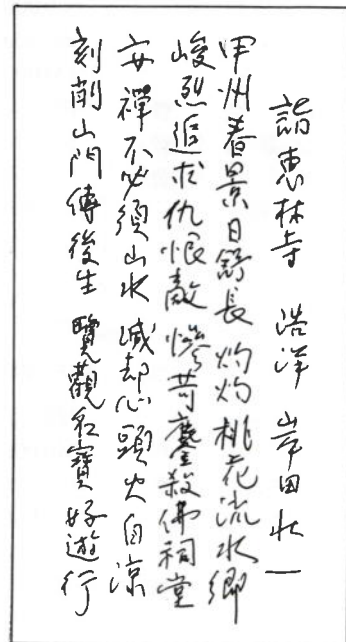 詣惠林寺 浩洋 岸田壮一
甲州春景日舒長 灼灼桃花流水郷
峻烈追求仇恨敵 惨苛鏖殺佛祠堂
安禪不必須山水 滅却心頭火自涼
刻削山門傳後生 覽觀名寶好遊行